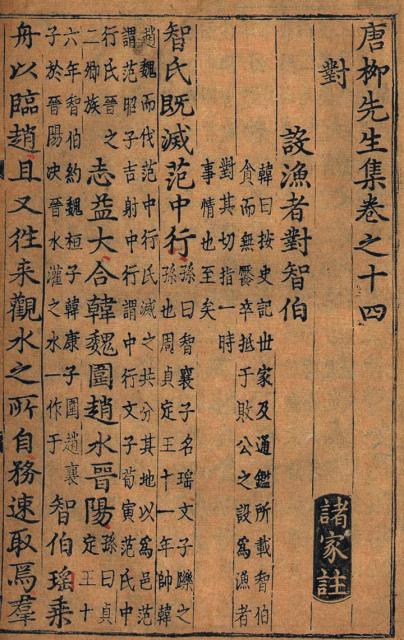 唐柳先生集卷之十四
對
諸家註
設漁者對智伯
韓曰按史記世家及通鑑所載智伯
貪而無饜卒抵于敗公之設爲漁者
對其切指一時
事情也至矣
智氏既滅范中行
孫曰智襄子名瑤文子躒之
孫也周貞定王十一年帥韓
趙魏而伐范中行氏滅之共分其地以爲邑范
謂范昭子吉射中行謂中行文子荀寅范氏中
行氏晉之
二卿族
志益大合韓魏圍趙水晉陽
孫曰貞
定王十
六年智伯約魏桓子韓康子圍趙襄
子於晉陽決晉水灌之水一作于
智伯瑤乘
舟以臨趙且又往來觀水之所自務速取焉羣